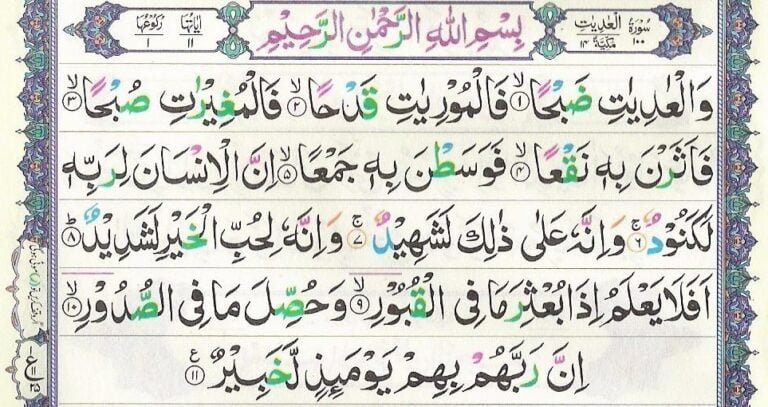 سُوْرَةُ الْعٰدِيٰتِ ١٠٠ مَكِّيَّةٌ ١٤
بِسْمِ اللهِ الرَّحْمٰنِ الرَّحِيْمِ
اٰيَاتُهَا ١١ رُكُوْعُهَا ١
وَالْعٰدِيٰتِ ضَبْحًا ۙ‏﴿۱﴾ فَالْمُوْرِيٰتِ قَدْحًا ۙ‏﴿۲﴾ فَالْمُغِيْرٰتِ صُبْحًا ۙ‏﴿۳﴾
فَاَثَرْنَ بِهٖ نَقْعًا ۙ‏﴿۴﴾ فَوَسَطْنَ بِهٖ جَمْعًا ۙ‏﴿۵﴾ اِنَّ الْاِنْسَانَ لِرَبِّهٖ
لَكَنُوْدٌ ۚ‏﴿۶﴾ وَاِنَّهٗ عَلٰى ذٰلِكَ لَشَهِيْدٌ ۚ‏﴿۷﴾ وَاِنَّهٗ لِحُبِّ الْخَيْرِ لَشَدِيْدٌ ؕ‏﴿۸﴾
اَفَلَا يَعْلَمُ اِذَا بُعْثِرَ مَا فِى الْقُبُوْرِ ۙ‏﴿۹﴾ وَحُصِّلَ مَا فِى الصُّدُوْرِ ۙ‏﴿۱۰﴾
اِنَّ رَبَّهُمْ بِهِمْ يَوْمَئِذٍ لَّخَبِيْرٌ ﴿۱۱﴾ ع